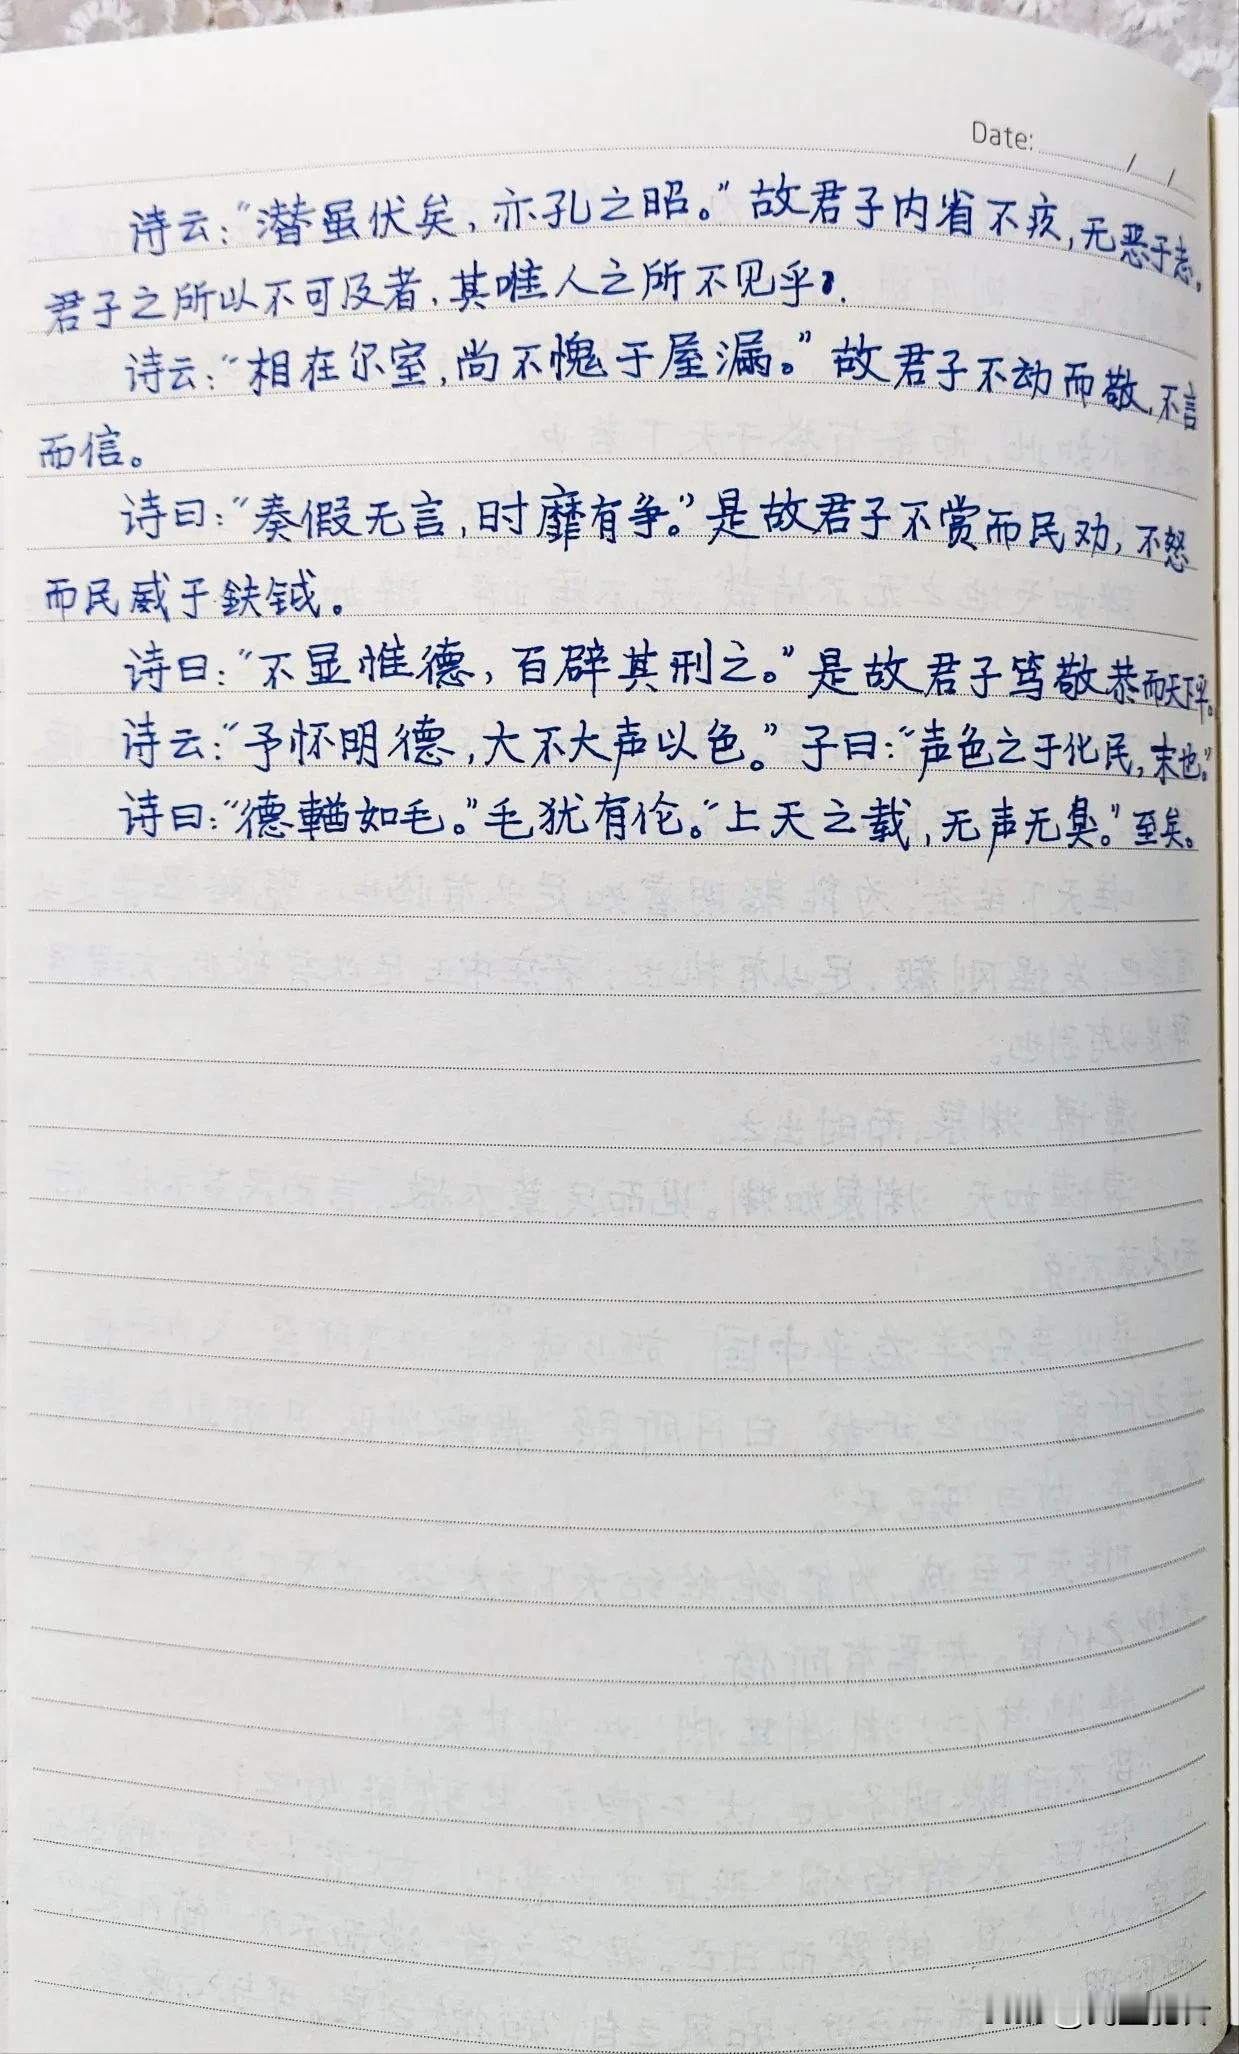 Date: / /
诗云:“潜虽伏矣,亦孔之昭。”故君子内省不疚,无恶于志。
君子之所以不可及者,其唯人之所不见乎?
诗云:“相在尔室,尚不愧于屋漏。”故君子不动而敬,不言
而信。
诗曰:“奏假无言,时靡有争。”是故君子不赏而民劝,不怒
而民威于鈇钺。
诗曰:“不显惟德,百辟其刑之。”是故君子笃敬恭而天下平。
诗云:“予怀明德,大不大声以色。”子曰:“声色之于化民,末也。”
诗曰:“德輶如毛。”毛犹有伦。“上天之载,无声无臭。”至矣。